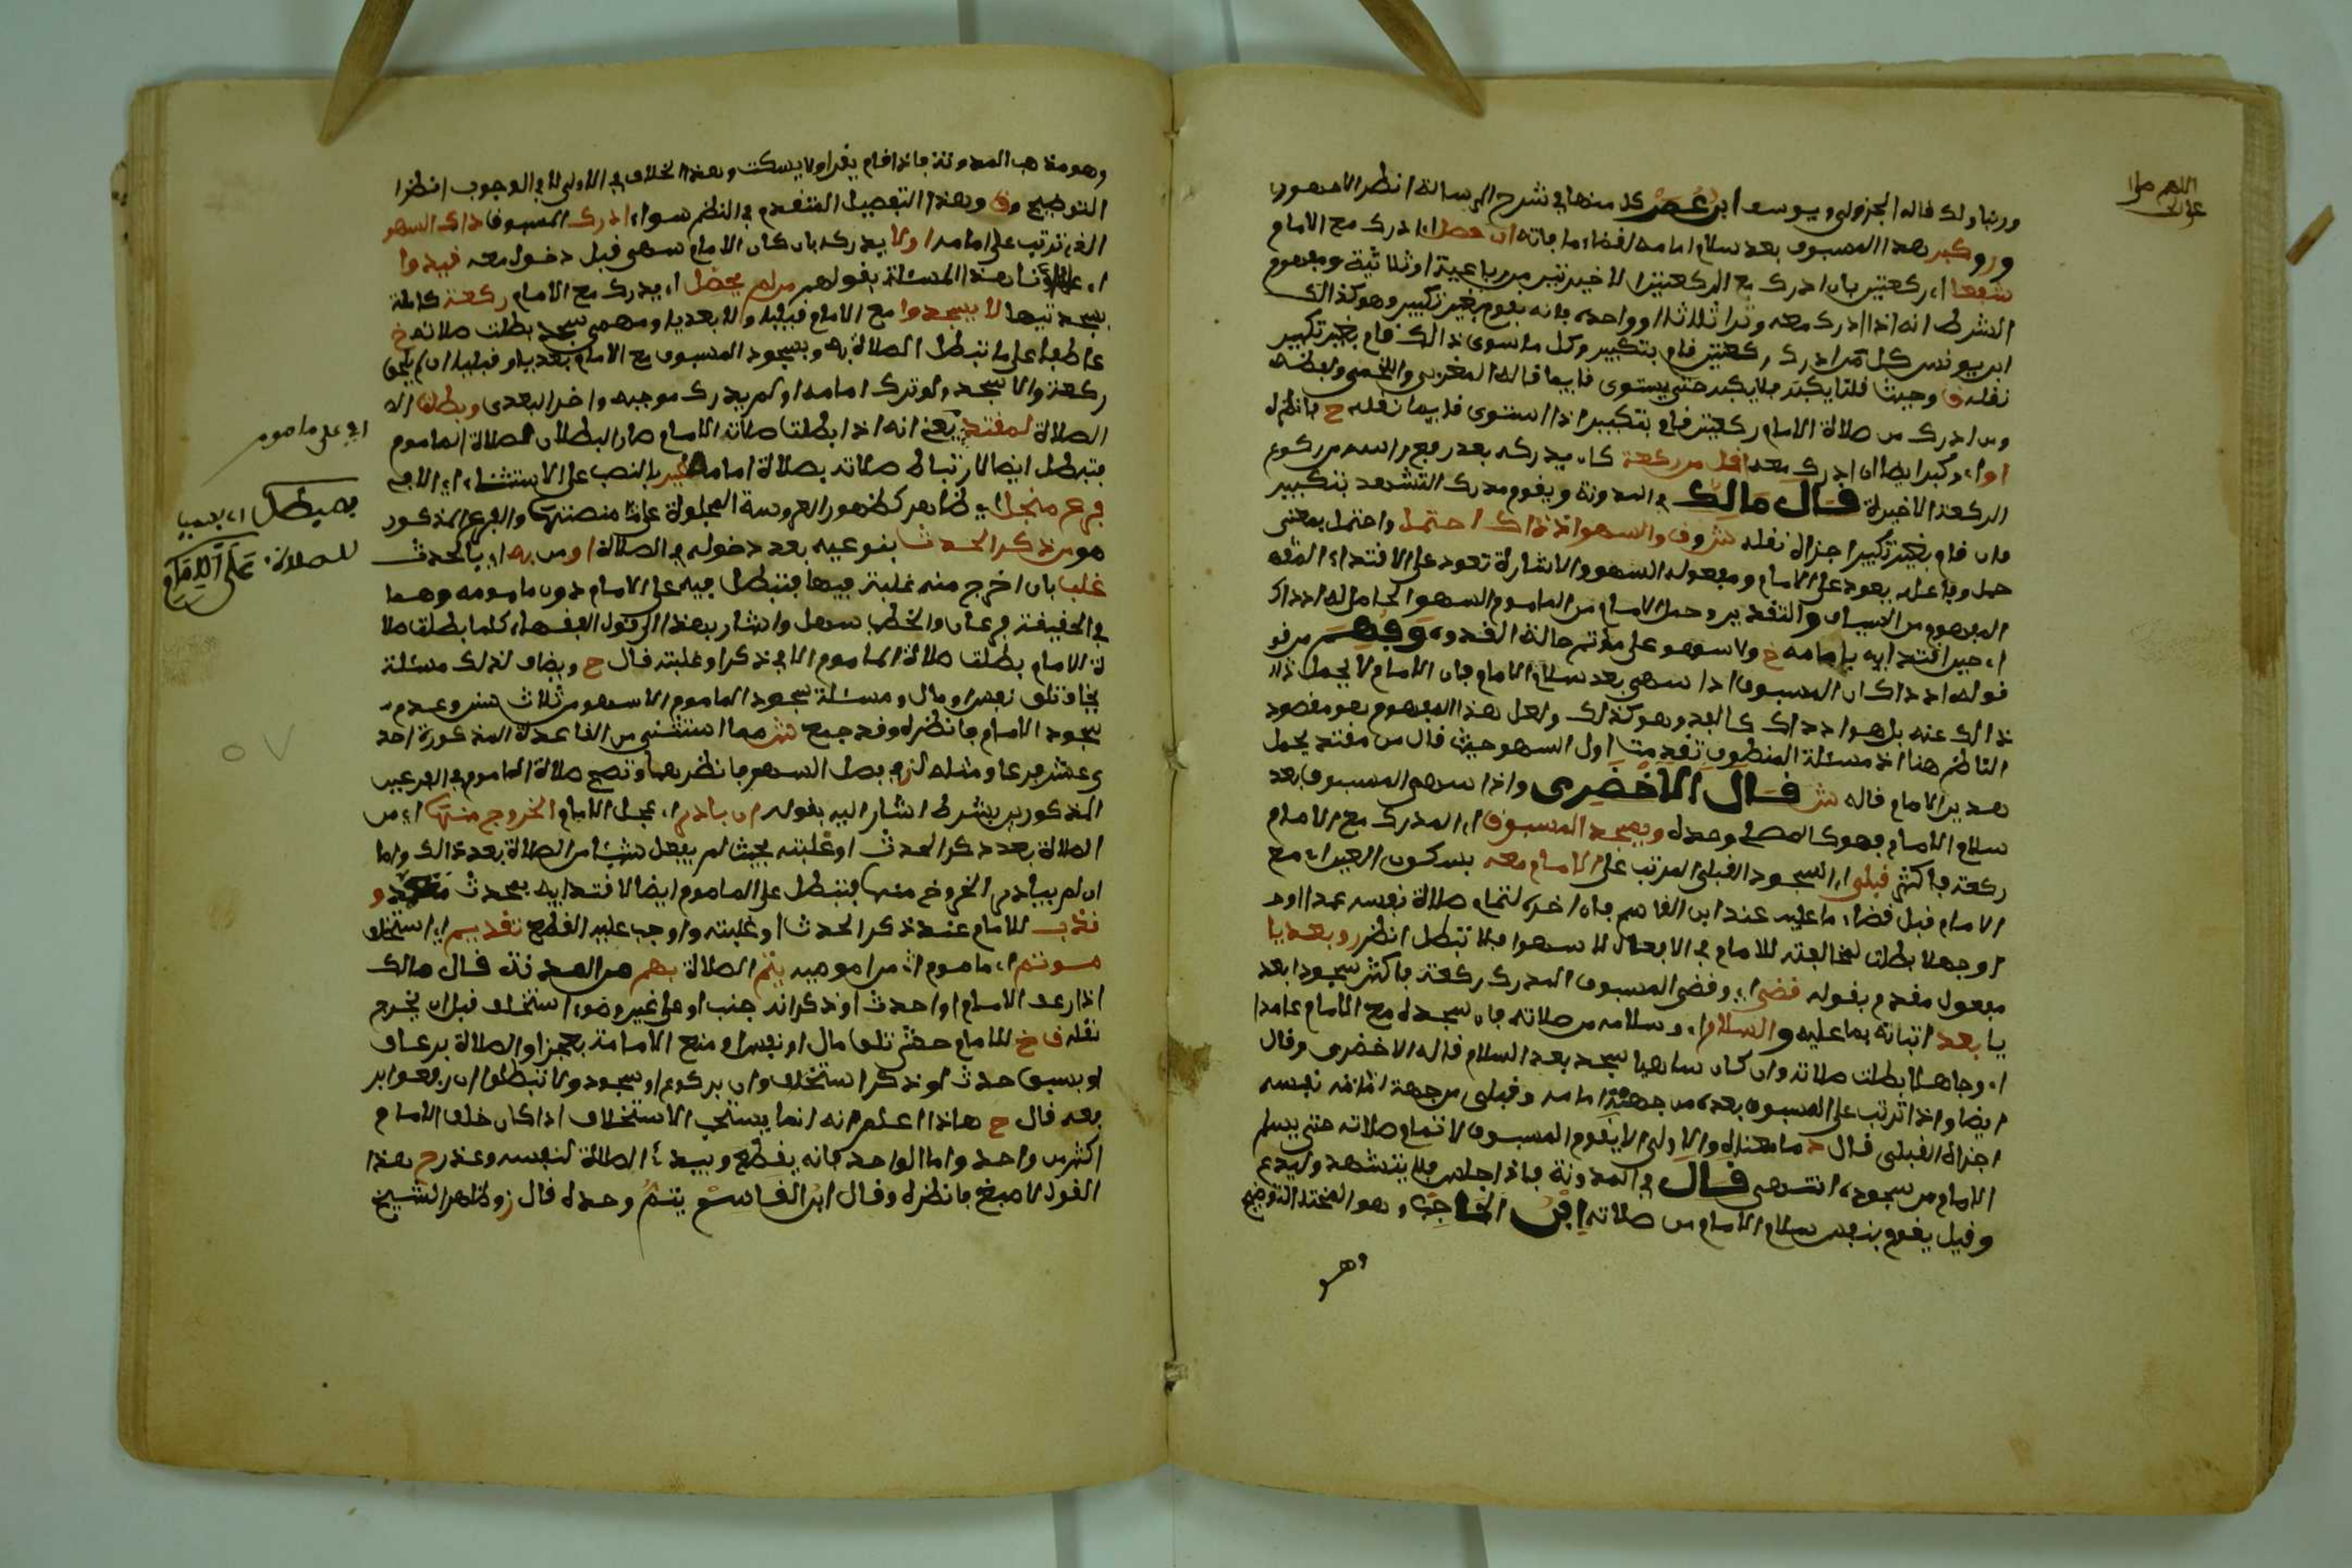 اللهم صل
وربنا ولك قاله الجزولي ويوسف ابن عمر كل منهما في شرح الرسالة انظر الاجهوري
وكبر هذا المسبوق بعد سلام امامه لقضاء ما فاته ان حصل اي ادرك مع الامام
شفعا اي ركعتين بان ادرك مع الركعتين الاخيرتين من رباعية او ثلاثية ومفهوم
الشرط انه اذا ادرك معه وترا ثلاثا او واحدة فانه يقوم بغير تكبير وهو كذلك
ابن يونس كل من ادرك ركعتين قام بتكبير وكل ما سوى ذالك قام بغير تكبير
نقله ق وحيث قلنا يكبر فلا يكبر حتى يستوى قايما قاله المغربي واللخمي ولفظه
ومن ادرك من صلاة الامام ركعتين قام بتكبير اذا استوى قايما نقله ح فانظره
او اي وكبر ايضا ان ادرك معه اقل من ركعة كان يدركه بعد رفع راسه من ركوع
الركعة الاخيرة قال مالك في المدونة ويقوم مدرك التشهد بتكبير
فان قام بغير تكبير اجزاه نقله شر وق والسهو اذ ذاك احتمل واحتمل بمعنى
حمل وفاعله يعود على الامام ومفعوله السهو والاشارة تعود على الاقتداء
المفهوم من السياق والتقدير وحمل الامام من الماموم السهو الحاصل له اذ ذاك
اي حين اقتدايه بامامه خ ولا سهو على مؤتم حالة القدوة وفهم من قو
قوله اذ ذاك ان المسبوق اذا سهى بعد سلام الامام فان الامام لا يحمل
ذالك عنه بل هو اذ ذاك كالفذ وهو كذلك ولعل هذا المفهوم هو مقصود
الناظم هنا اذ مسئلة المنطوق تقدمت اول السهو حيث قال من مقتد يحمل
هذين الامام قاله شر قال الاخضري واذا سهى المسبوق بعد
سلام الامام فهو كالمصلي وحده ويسجد المسبوق اي المدرك مع الامام
ركعة فاكثر قبلي اي السجود القبلي المرتب على الامام معه بسكون العين اي مع
الامام قبل قضاء ما عليه عند ابن القاسم فان اخره لتمام صلاة نفسه عمدا او
او جهلا بطلت لمخالفته للامام في الافعال لا سهوا فلا تبطل انظر ز وبعديا
مفعول مقدم بقوله قضى اي وقضى المسبوق المدرك ركعة فاكثر سجودا بعد
يا بعد اتيانه بما عليه والسلام اي وسلامه من صلاته فان سجده مع الامام عامدا
اي وجاهلا بطلت صلاته وان كان ساهيا سجد بعد السلام قاله الاخضري وقال
ايضا واذا ترتب على المسبوق بعدي من جهة امامه وقبلي من جهة نفسه
اجزاه القبلي قال ح ما معناه والاولى الا يقوم المسبوق لاتمام صلاته حتى يسلم
الامام من سجوده انتهى قال في المدونة فاذا جلس فلا يتشهد وليدع
وقيل يقوم بنفس سلام الامام من صلاته ابن الحاجب وهو المختار التوضيح
وهو
وهو مذهب المدونة فاذا قام يقرا ولا يسكت وهذا الخلاف في الاولى لا في الوجوب انظر
التوضيح وق وهذا التفصيل المتقدم في النظم سواء ادرك المسبوق ذاك السهو
الذي ترتب على امامه او لا يدركه بان كان الامام سهى قبل دخوله معه قيدوا
اي علماؤنا هذه المسئلة بقولهم من لم يحصل اي يدرك مع الامام ركعة كاملة
بسجدتيها لا يسجدوا مع الامام قبليا ولا بعديا ومهمى سجد بطلت صلاته خ
عاطفا على ما تبطل الصلاة به وبسجود المسبوق مع الامام بعديا او قبليا ان لم يلحق
ركعة والا سجد ولو ترك امامه او لم يدرك موجبه واخر البعدي وبطلت
الصلاة لمقتد يعني انه اذا بطلت صلاة الامام صار البطلان لصلاة الماموم
فتبطل ايضا لارتباط صلاته بصلاة امامه غير بالنصب على الاستثناء اي الا في
فرع منجلي اي ظاهر كظهور العروسة المجلوة على منصتها والفرع المذكور
هو من ذكر الحدث بنوعيه بعد دخوله في الصلاة او من به اي بالحدث
غلب بان اخرج منه غلبة فيها فتبطل فيه على الامام دون مامومه وهما
في الحقيقة فرعان والخطب سهل واشار بهذا الى قول الفقهاء كلما بطلت صلا
ة الامام بطلت صلاة الماموم الا في ذكر او غلبته قال ح ويضاف لذلك مسئلة
يخاف تلف نفس او مال ومسئلة سجود الماموم لسهو من ثلاث سنن وعدم
سجود الامام فانظره وقد جمع شر مما استثنى من القاعدة المذكورة احد
ى عشر فرعا ومثله لز في فصل السهو فانظرهما وتصح صلاة الماموم في الفرعين
المذكورين بشرط اشار اليه بقوله ان بادر اي عجل الامام الخروج منها اي من
الصلاة بعد ذكر الحدث او غلبته بحيث لم يفعل شيئا من الصلاة بعد ذالك واما
ان لم يبادر الخروج منها فتبطل على الماموم ايضا لاقتدايه بمحدث متعمد و
ندب للامام عند ذكر الحدث او غلبته واوجب عليه القطع تقديم اي استخلاف
مؤتم اي ماموم من مامومين يتم الصلاة بهم من المدونة قال مالك
اذا رعف الامام او احدث او ذكر انه جنب او على غير وضوء استخلف قبل ان يخرج
نقله ق خ للامام خشي تلف مال او نفس او منع الامامة بعجز او الصلاة برعاف
او بسبق حدث او ذكر استخلاف وان بركوع او سجود ولا تبطل ان رفعوا بر
فعه قال ح هاذا اعلم انه انما يستحب الاستخلاف اذا كان خلف الامام
اكثر من واحد واما الواحد فانه يقطع ويبدئ الصلاة لنفسه وعند ح هذا
القول لاصبغ فانظره وقال ابن القاسم يتم وحده قال ز وظاهر الشيخ
اي على ماموم
فيبطل اي فيها
للصلاة على الامام